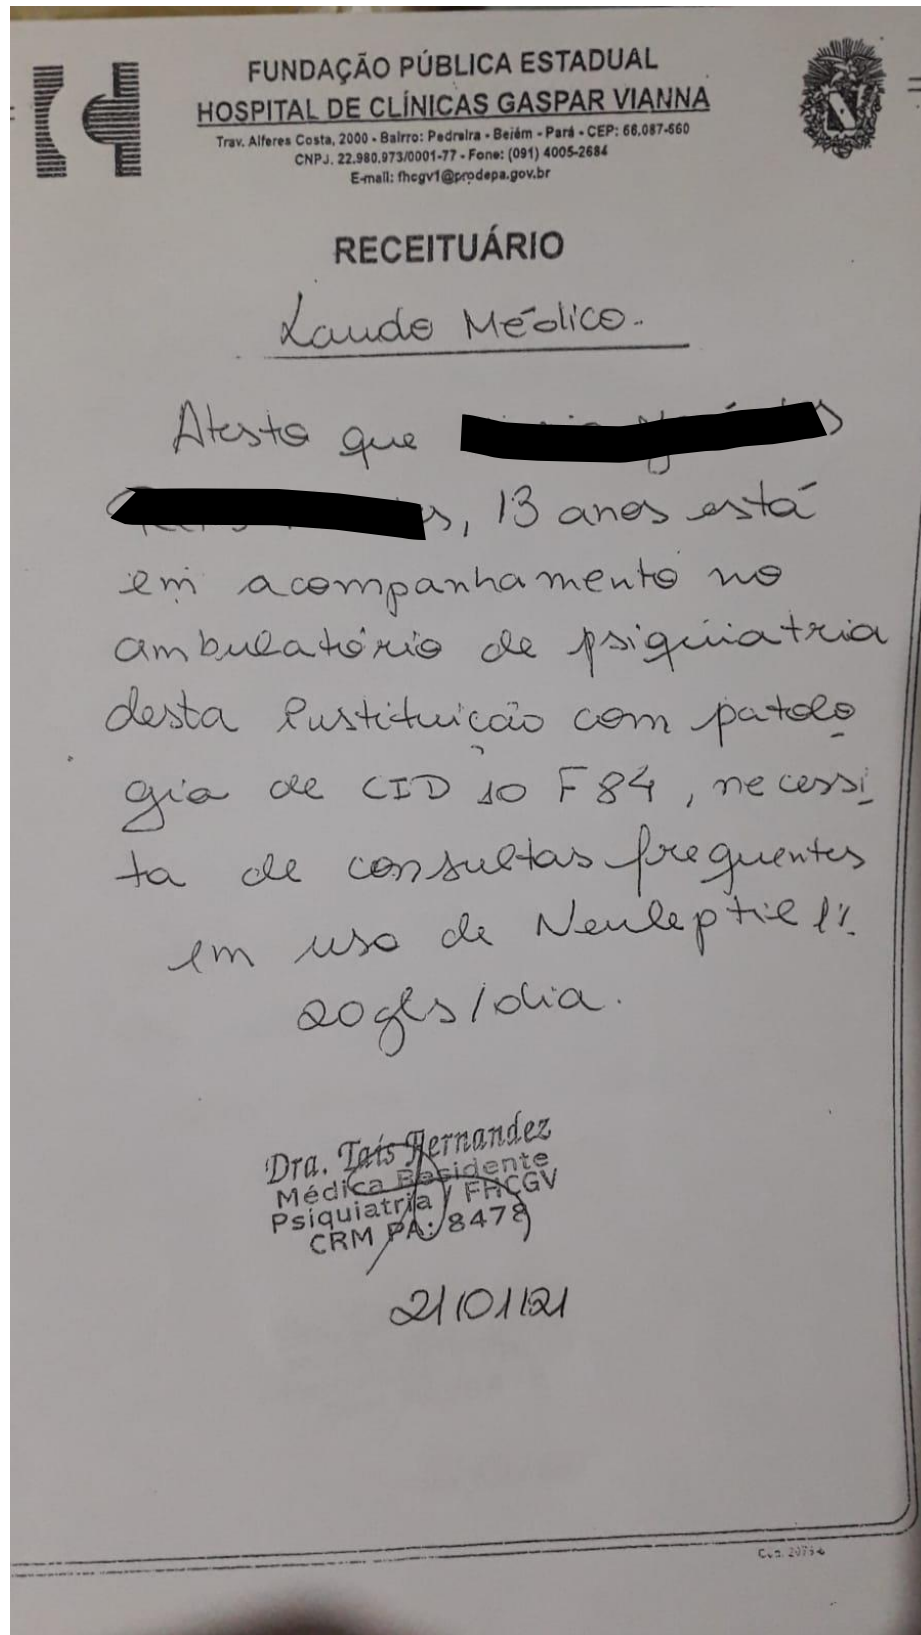 FUNDAÇÃO PÚBLICA ESTADUAL
HOSPITAL DE CLÍNICAS GASPAR VIANNA
Trav. Alferes Costa, 2000 - Bairro: Pedreira - Belém - Pará - CEP: 66.087-660
CNPJ. 22.980.973/0001-77 - Fone: (091) 4005-2684
E-mail: fhcgv1@prodepa.gov.br
RECEITUÁRIO
Laudo Médico.
Atesto que
, 13 anos está
em acompanhamento no
ambulatório de psiquiatria
desta Instituição com patolo
gia de CID 10 F84, necessi
ta de consultas frequentes
em uso de Neuleptil 1%
20gts/dia.
Dra. Taís Hernandez
Médica Residente
Psiquiatria / FHCGV
CRM PA: 8478
21/01/21